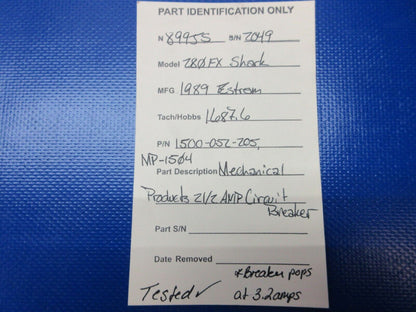 PART IDENTIFICATION ONLY
N 8995S S/N 2049
Model 280FX Shark
MFG 1989 Enstrom
Tach/Hobbs 1687.6
P/N 1500-052-205,
MP-1504
Part Description Mechanical
Products 2 1/2 AMP Circuit
Breaker
Part S/N
Date Removed
*Breaker pops
Tested✓ at 3.2amps